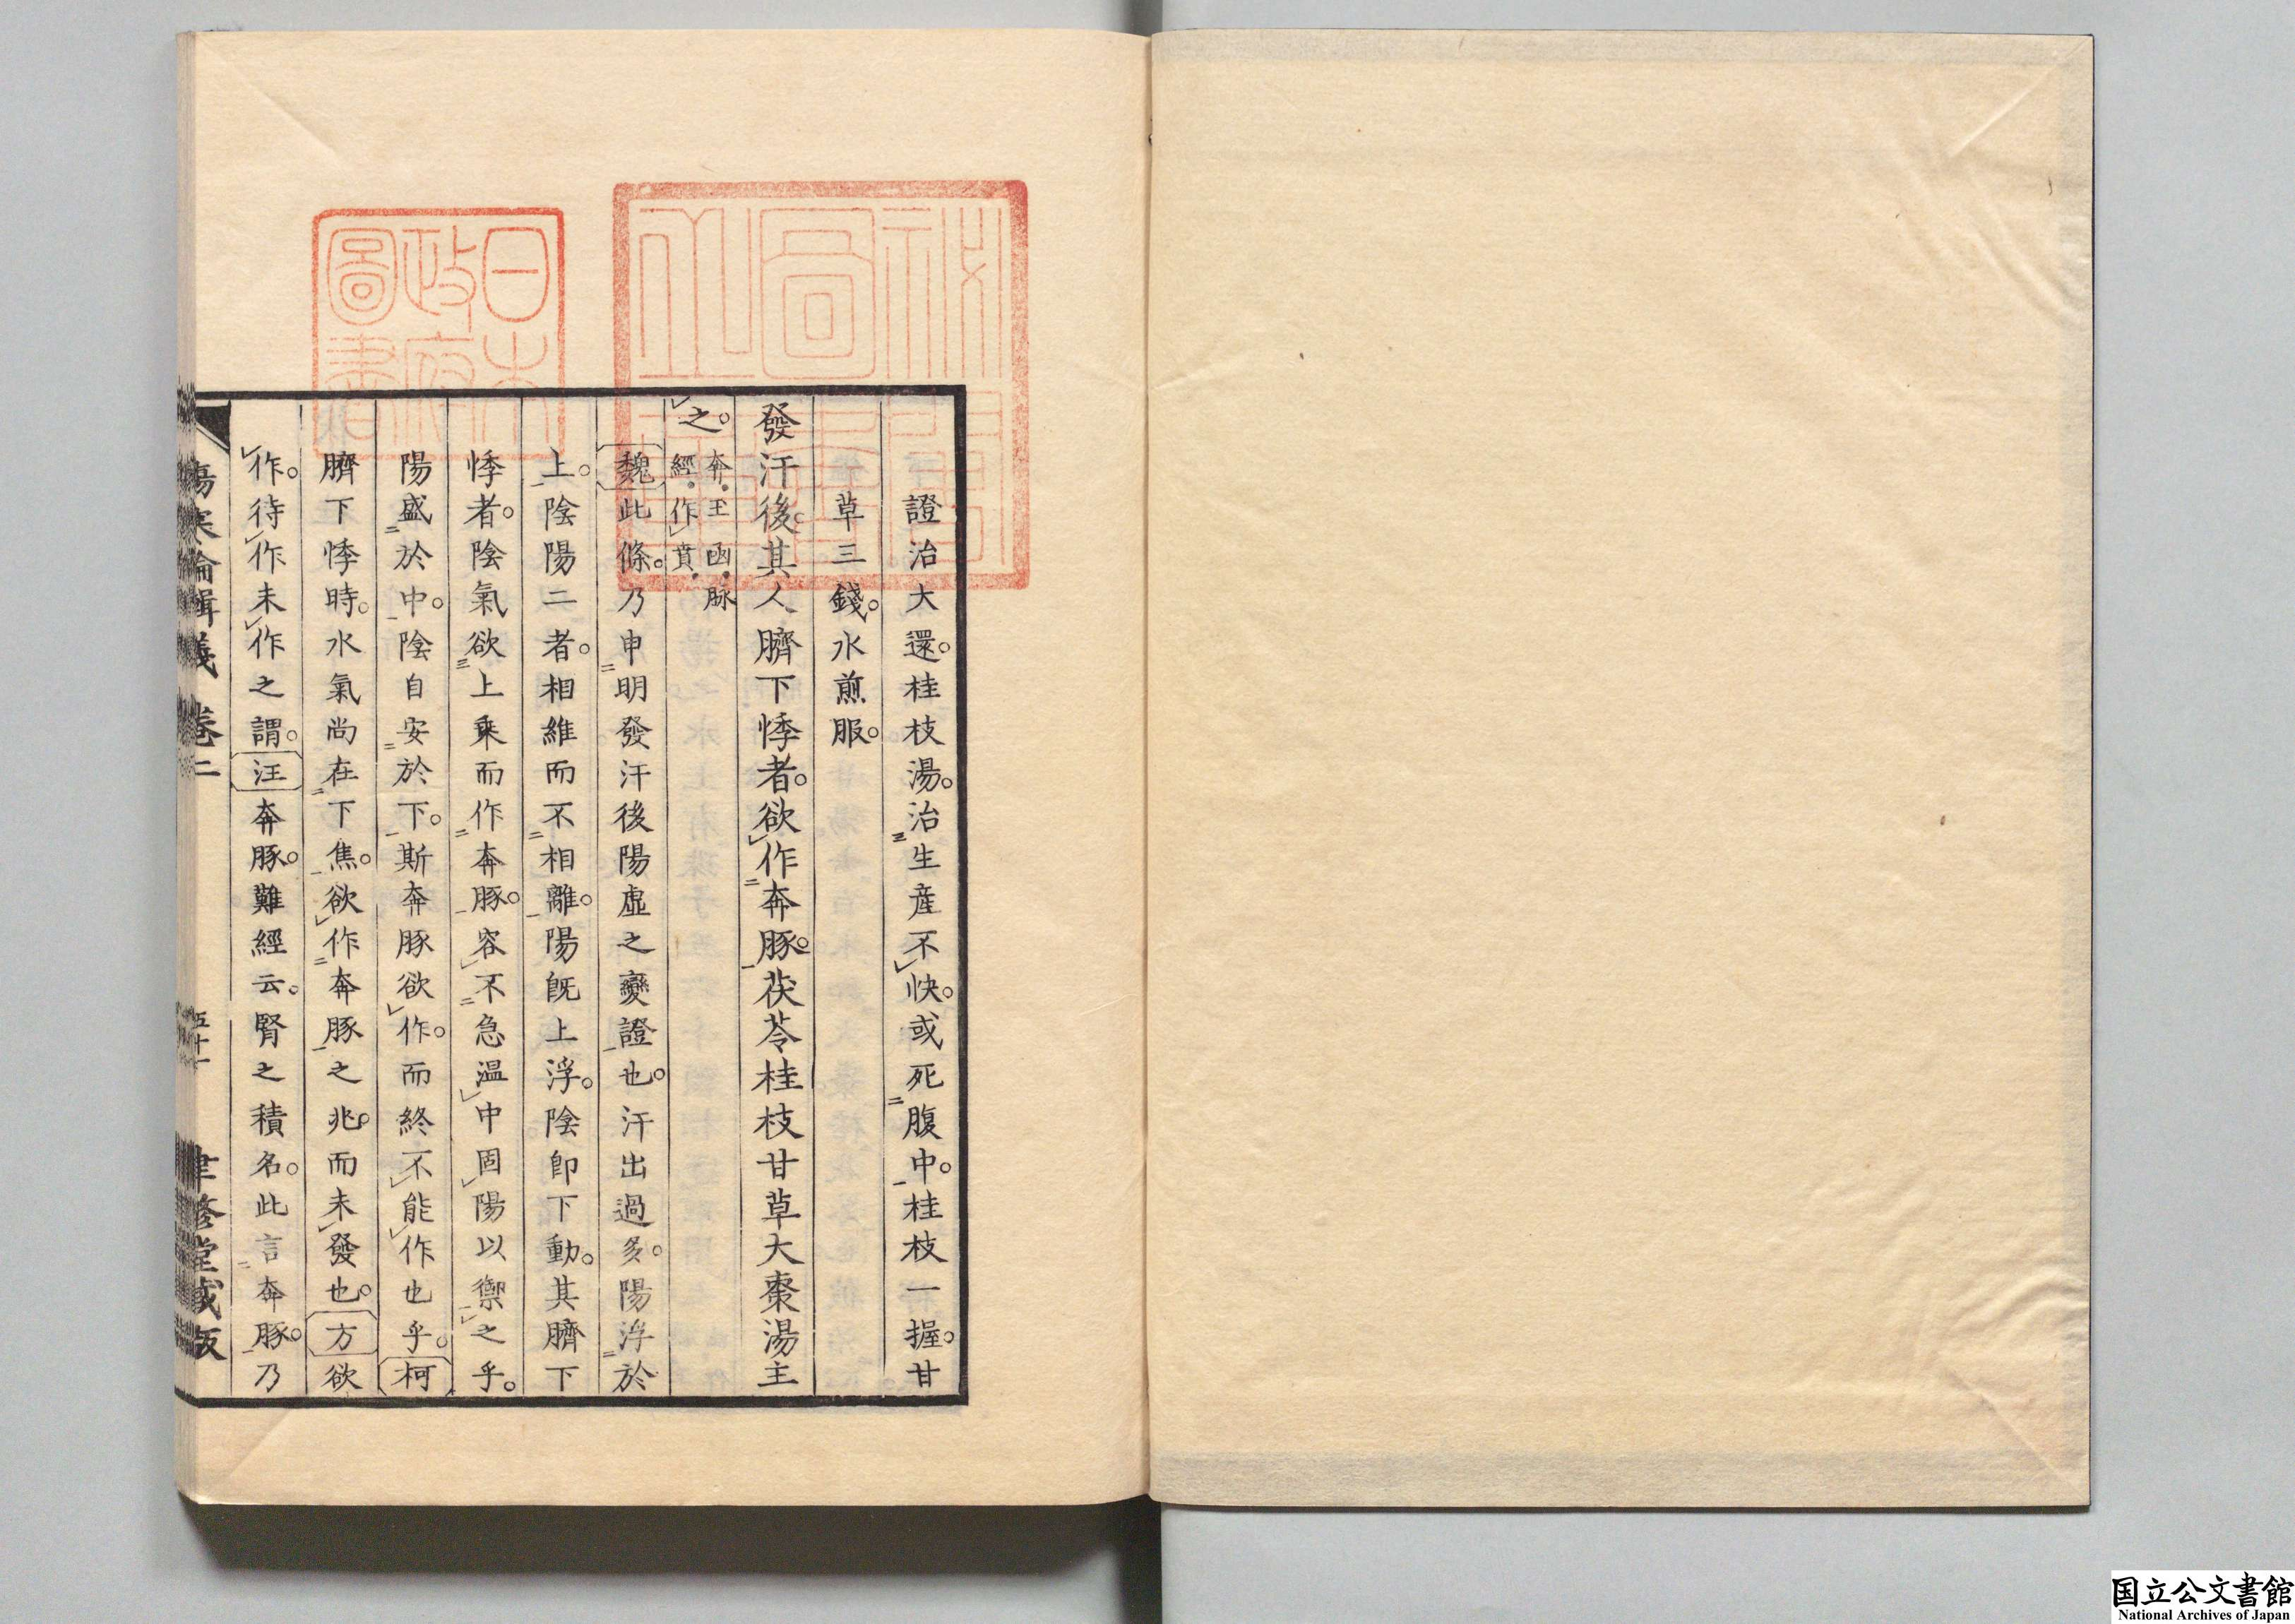 證治大還。桂枝湯。治生產不快。或死腹中。桂枝一握。甘
草三錢。水煎服。
發汗後。其人臍下悸者。欲作奔豚。茯苓桂枝甘草大棗湯主
之。奔。王函。脉經。作賁。
魏此條。乃申明發汗後陽虛之變證也。汗出過多。陽浮於
上。陰陽二者。相維而不相離。陽既上浮。陰即下動。其臍下
悸者。陰氣欲上乘而作奔豚。容不急溫中固陽以禦之乎。
陽盛於中。陰自安於下。斯奔豚欲作。而終不能作也乎。柯
臍下悸時。水氣尚在下焦。欲作奔豚之兆。而未發也。方欲
作。待作未作之謂。汪奔豚。難經云。腎之積名。此言奔豚。乃
傷寒論輯義 卷二 五十一 聿修堂藏版
日本政府圖書
国立公文書館
National Archives of Japan